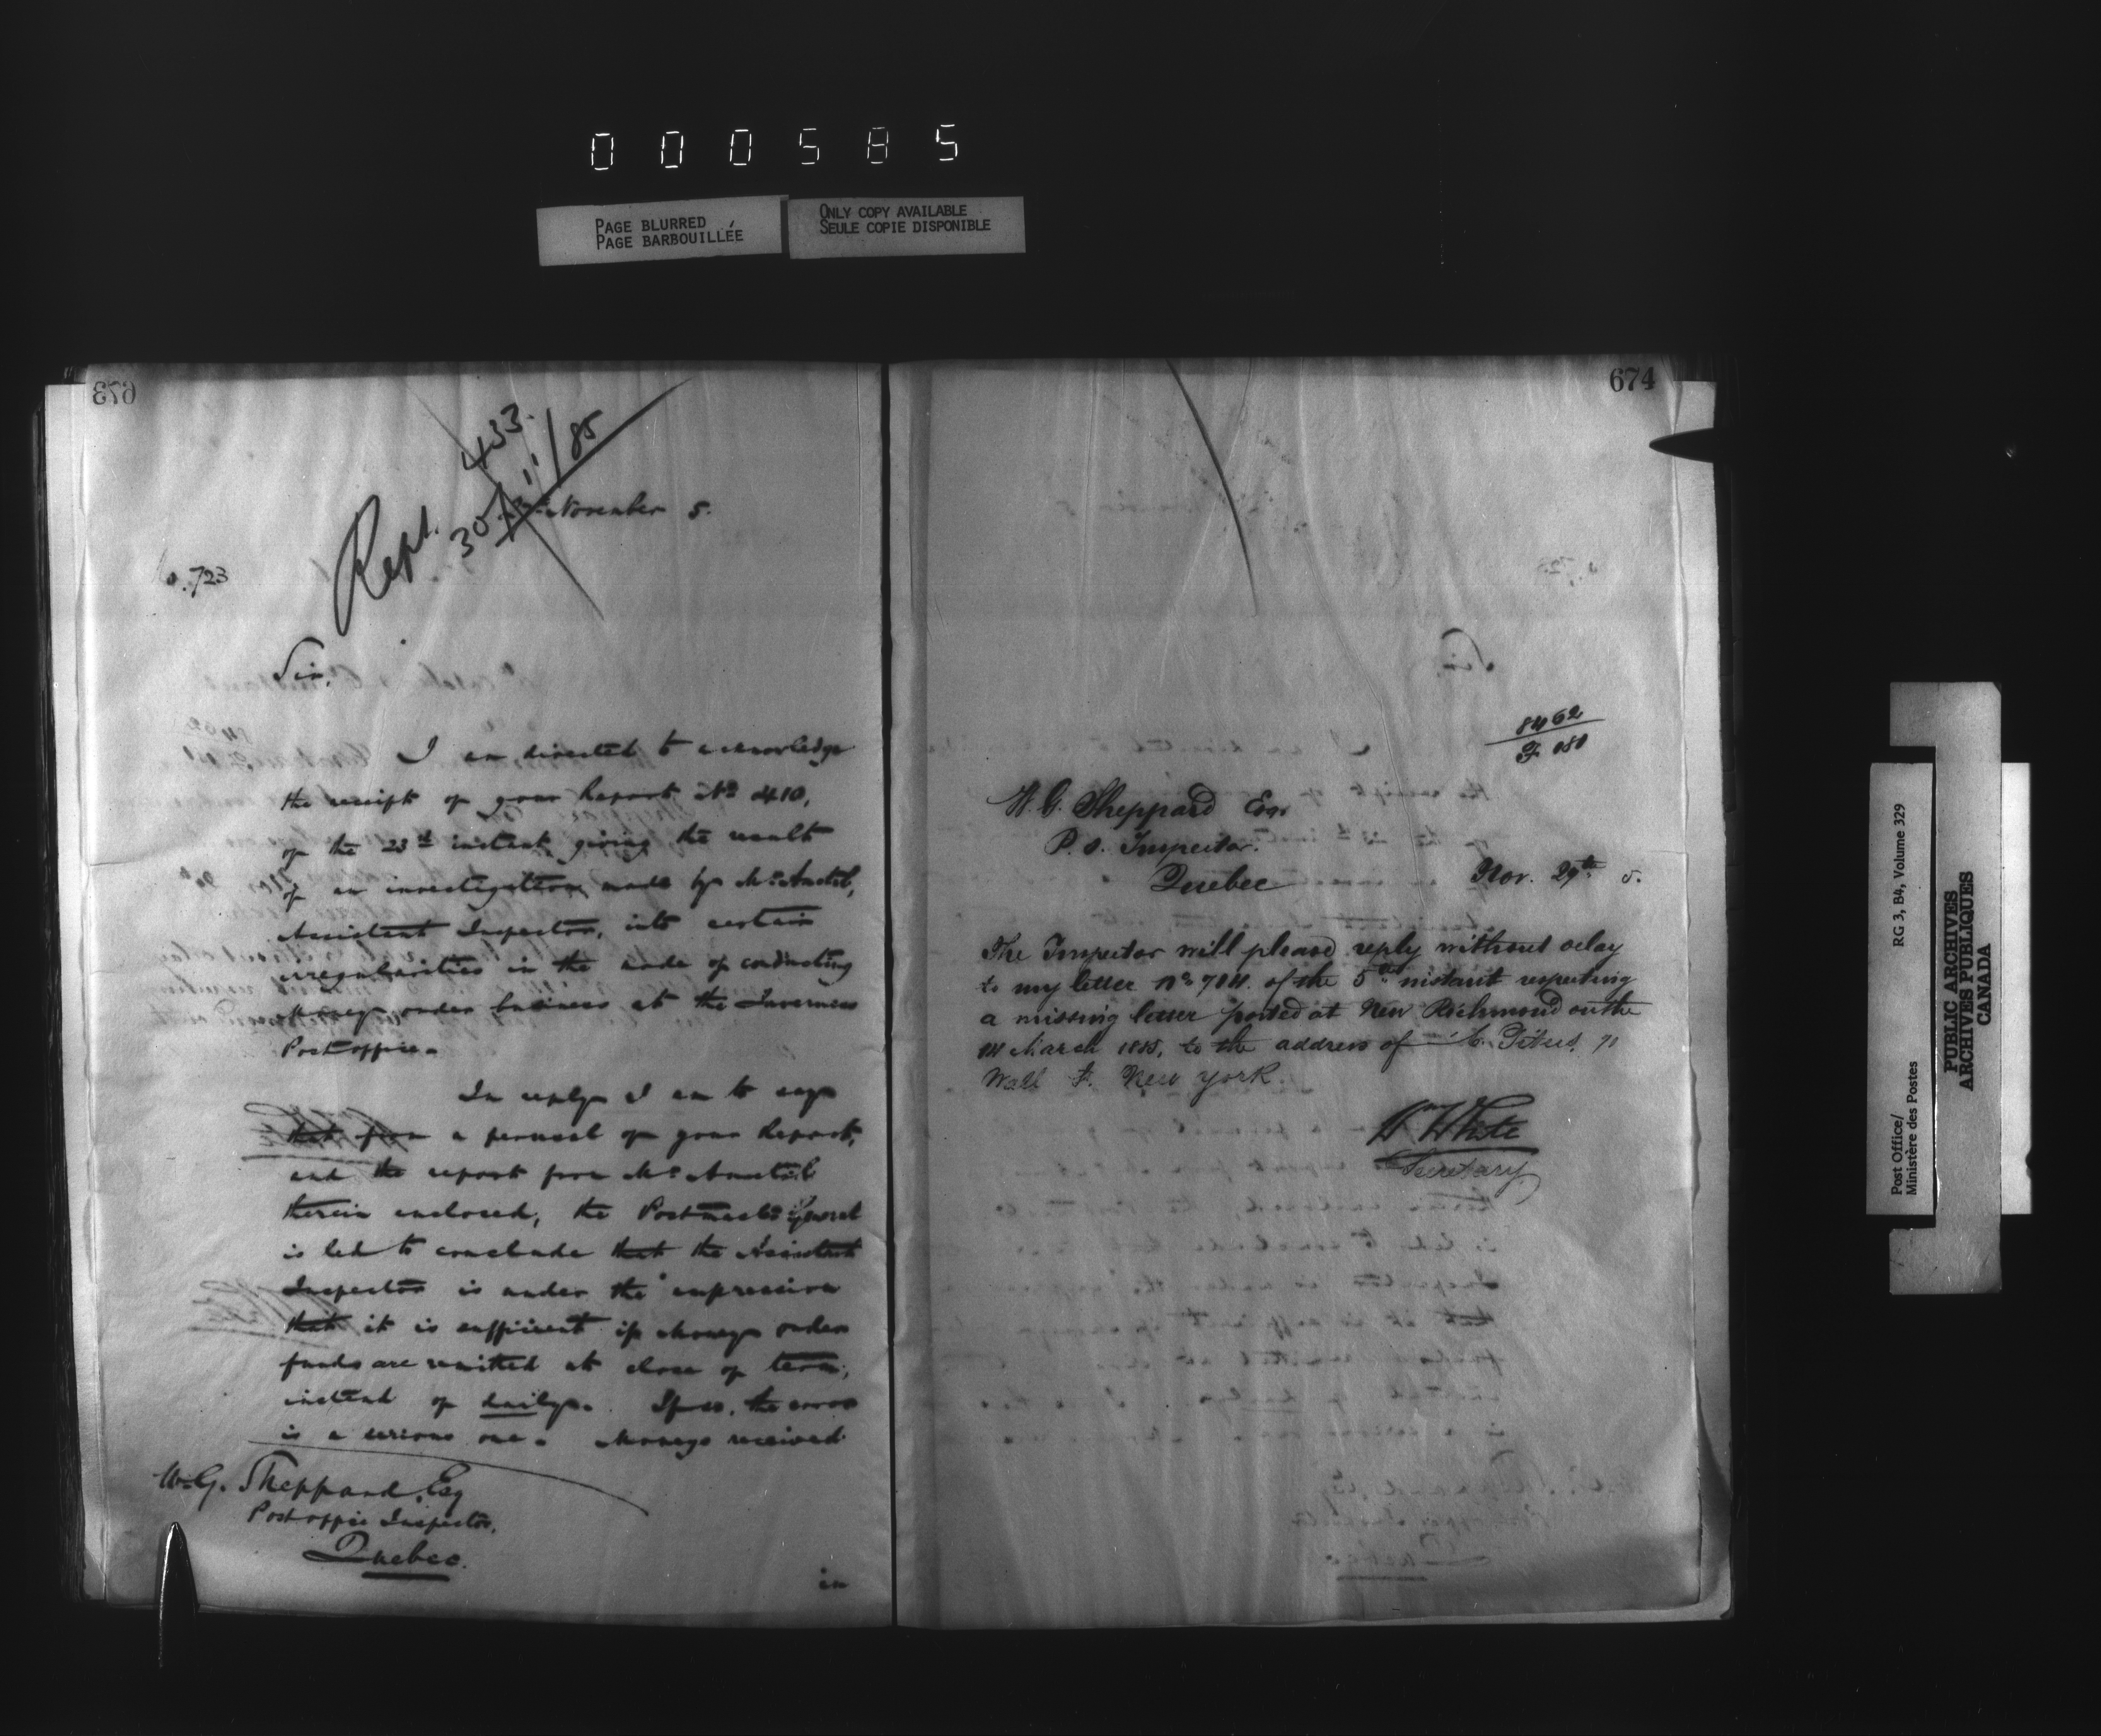 000585
PAGE BLURRED
PAGE BARBOUILLÉE
ONLY COPY AVAILABLE
SEULE COPIE DISPONIBLE
673
Rept. 433
30/11/85
November 5.
No. 723
Sir,
I am directed to acknowledge
the receipt of your Report No 410,
of the 23rd instant giving the result
of an investigation made by Mr.
Assistant Inspector, into certain
irregularities in the mode of conducting
Money order business at the Inverness
Post office.
In reply I am to say
that from a perusal of your Report,
and the report from Mr.
therein enclosed, the Postmaster General
is led to conclude that the Assistant
Inspector is under the impression
that it is sufficient if Money order
funds are remitted at close of term,
instead of daily. If so, the error
is a serious one. Moneys received
W.G. Sheppard, Esq
Post office Inspector,
Quebec.
in
674
8462
F
W. G. Sheppard Esqr
P.O. Inspector.
Quebec
Nov. 29th 5.
The Inspector will please reply without delay
to my letter No 704. of the 5th instant respecting
a missing letter posted at New Richmond on the
March 1885, to the address of
Wall St. New York.
Wm White
Secretary
Post Office/
Ministère des Postes
RG 3, B4, Volume 329
PUBLIC ARCHIVES
ARCHIVES PUBLIQUES
CANADA